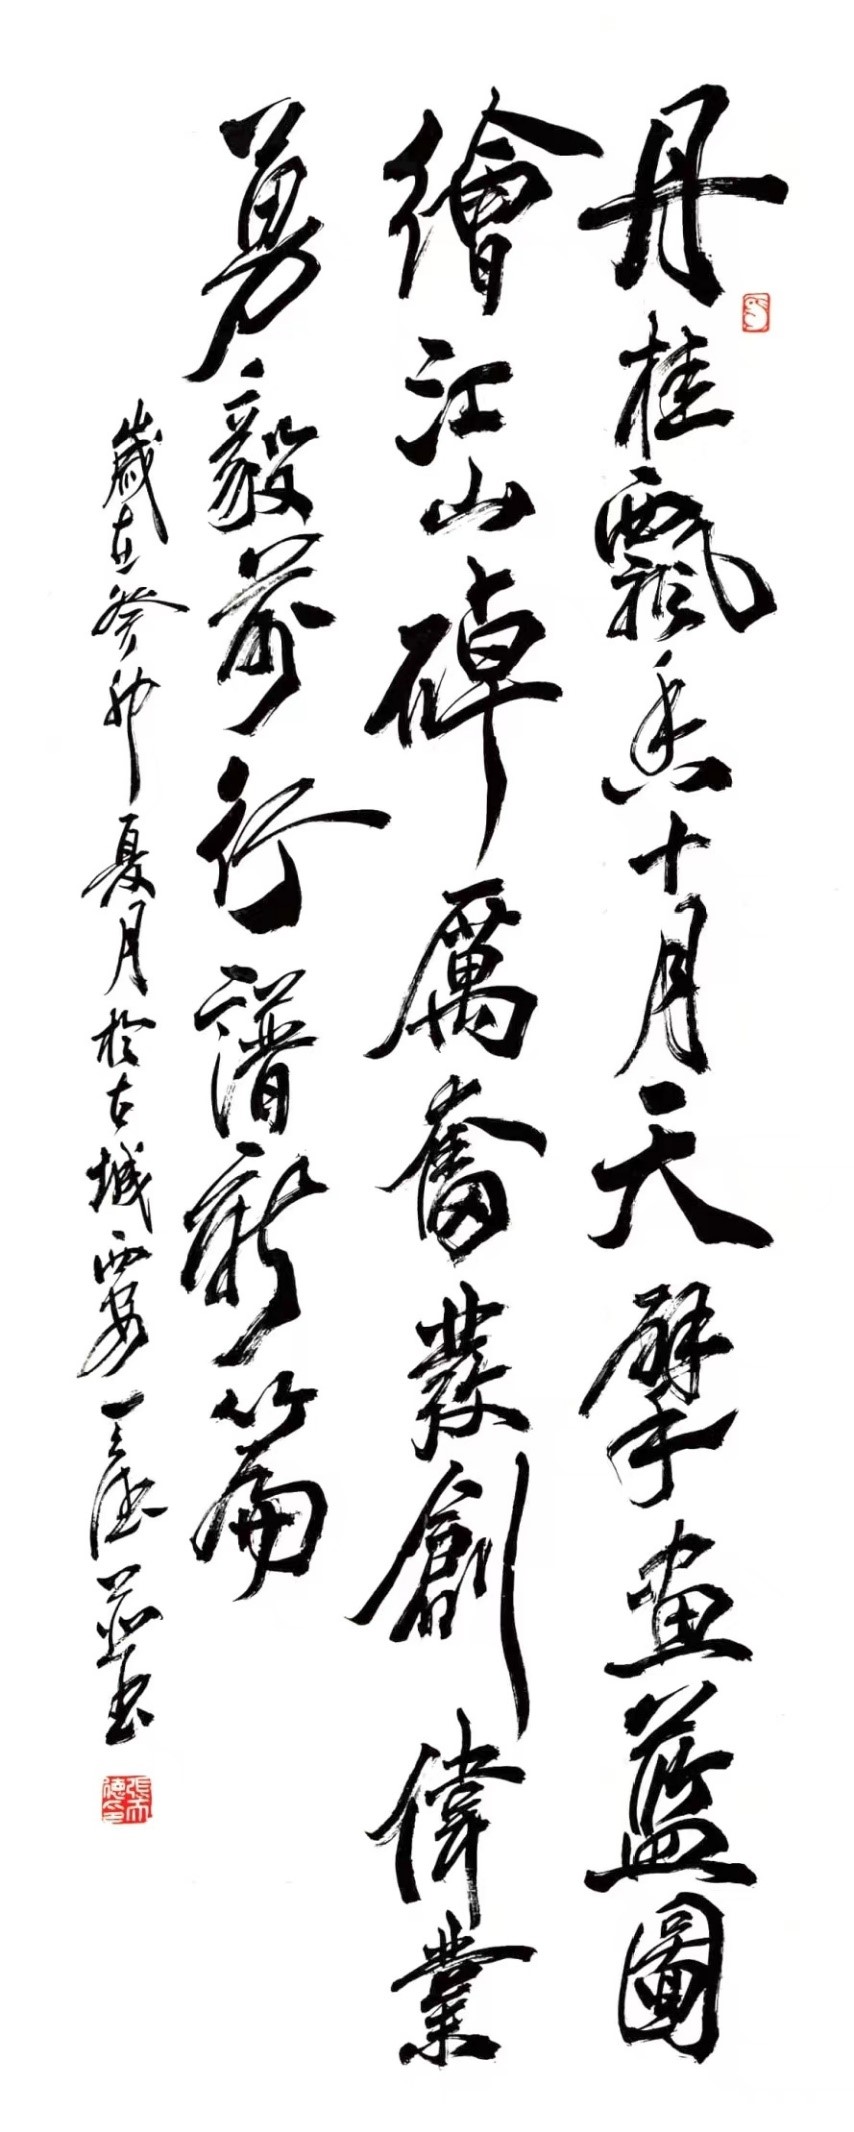 丹桂飄香十月天擘畫藍圖
繪江山踔厲奮發創偉業
勇毅前行譜新篇
歲在癸卯夏月於古城西安天德並書
張天德印